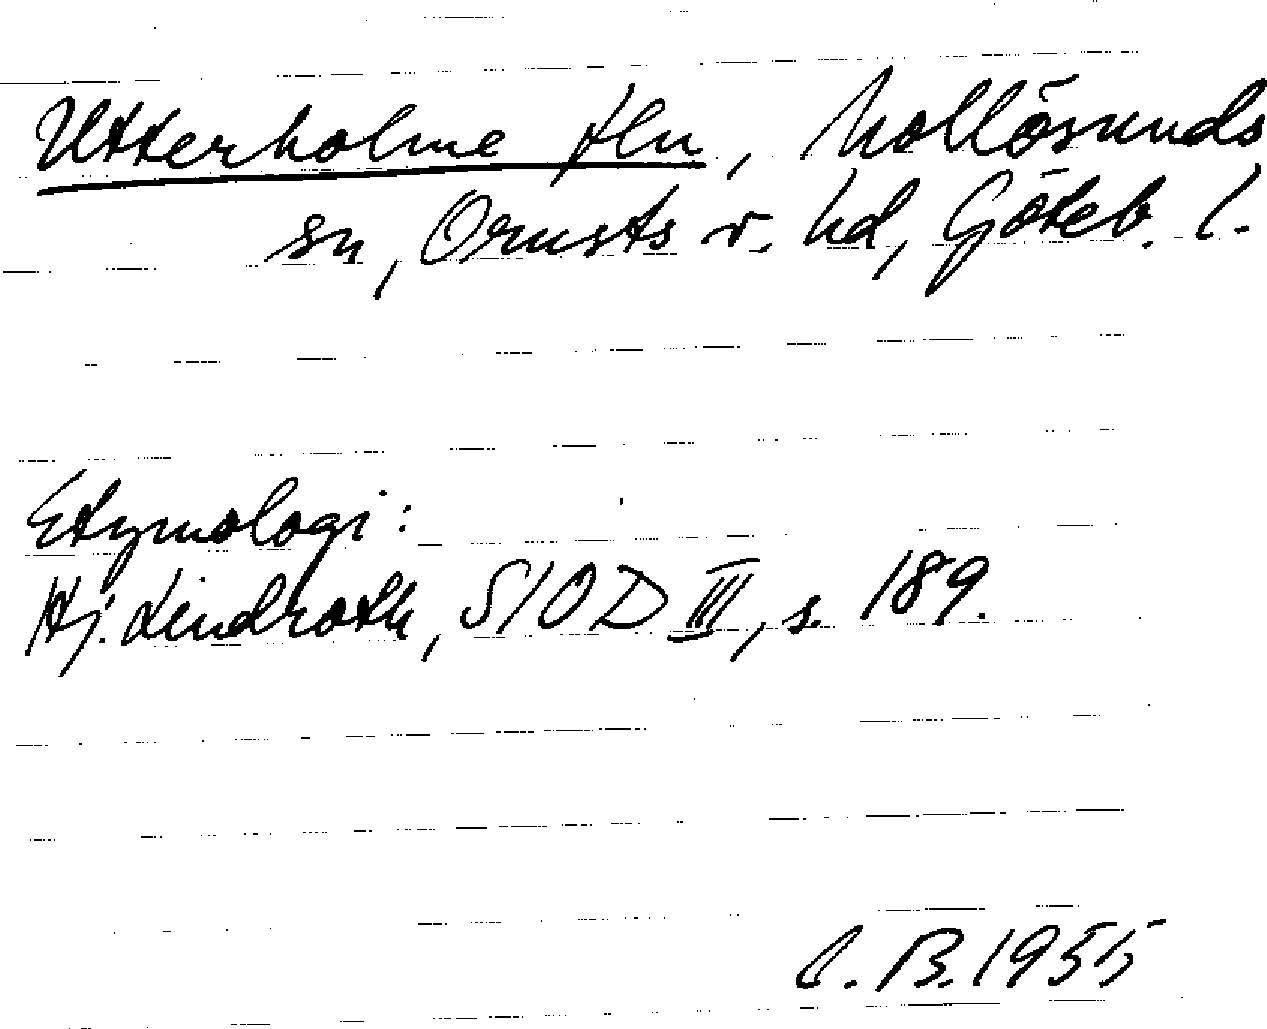 Utterholme fln, Mollösunds
sn, Orusts v. hd, Göteb. l.
Etymologi:
Hj. Lindroth, SIOD III, s. 189.
B. 1955